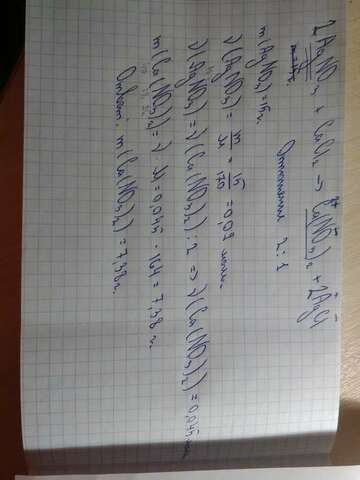 2AgNO₃ + CaCl₂ → Ca(NO₃)₂ + 2AgCl
Отношение 2:1
m(AgNO₃) = 15 г.
ν(AgNO₃) = m/M = 15/170 = 0,09 моль.
ν(AgNO₃) = ν(Ca(NO₃)₂) : 2 => ν(Ca(NO₃)₂) = 0,045 моль
m(Ca(NO₃)₂) = ν · M = 0,045 · 164 = 7,38 г.
Ответ: m(Ca(NO₃)₂) = 7,38 г.